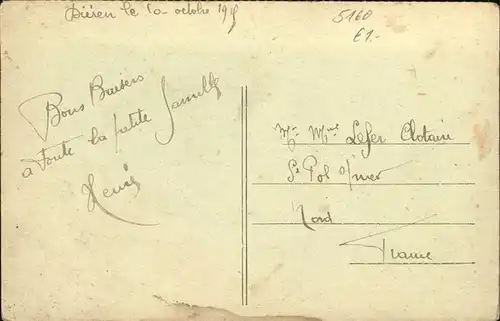 le 10 octobre 19
5160
£1-
Bons Baisers
à toute la petite famille
Henri
Mr Mme Lefer Clotaire
St Pol s/mer
Nord
France